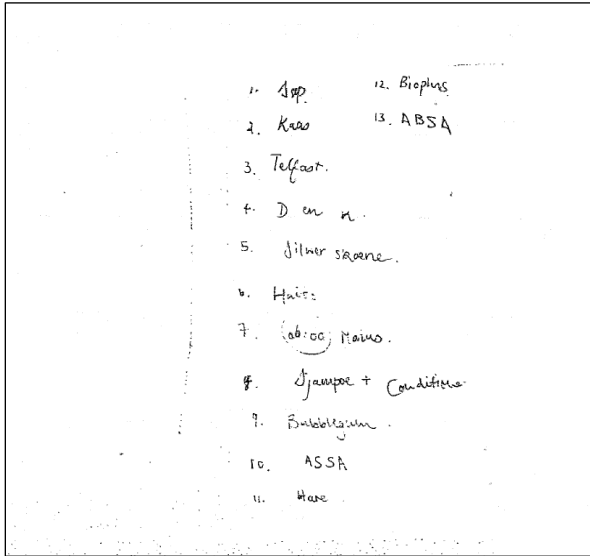 1. Sop.
2. Kaas
3. Telfast.
4. D en
5. Silwer skoene.
6. Hare:
7. Mains.
8. Sjampoe + Conditione
9. Bubblegum.
10. ASSA
11. Hare
12. Bioplus
13. ABSA